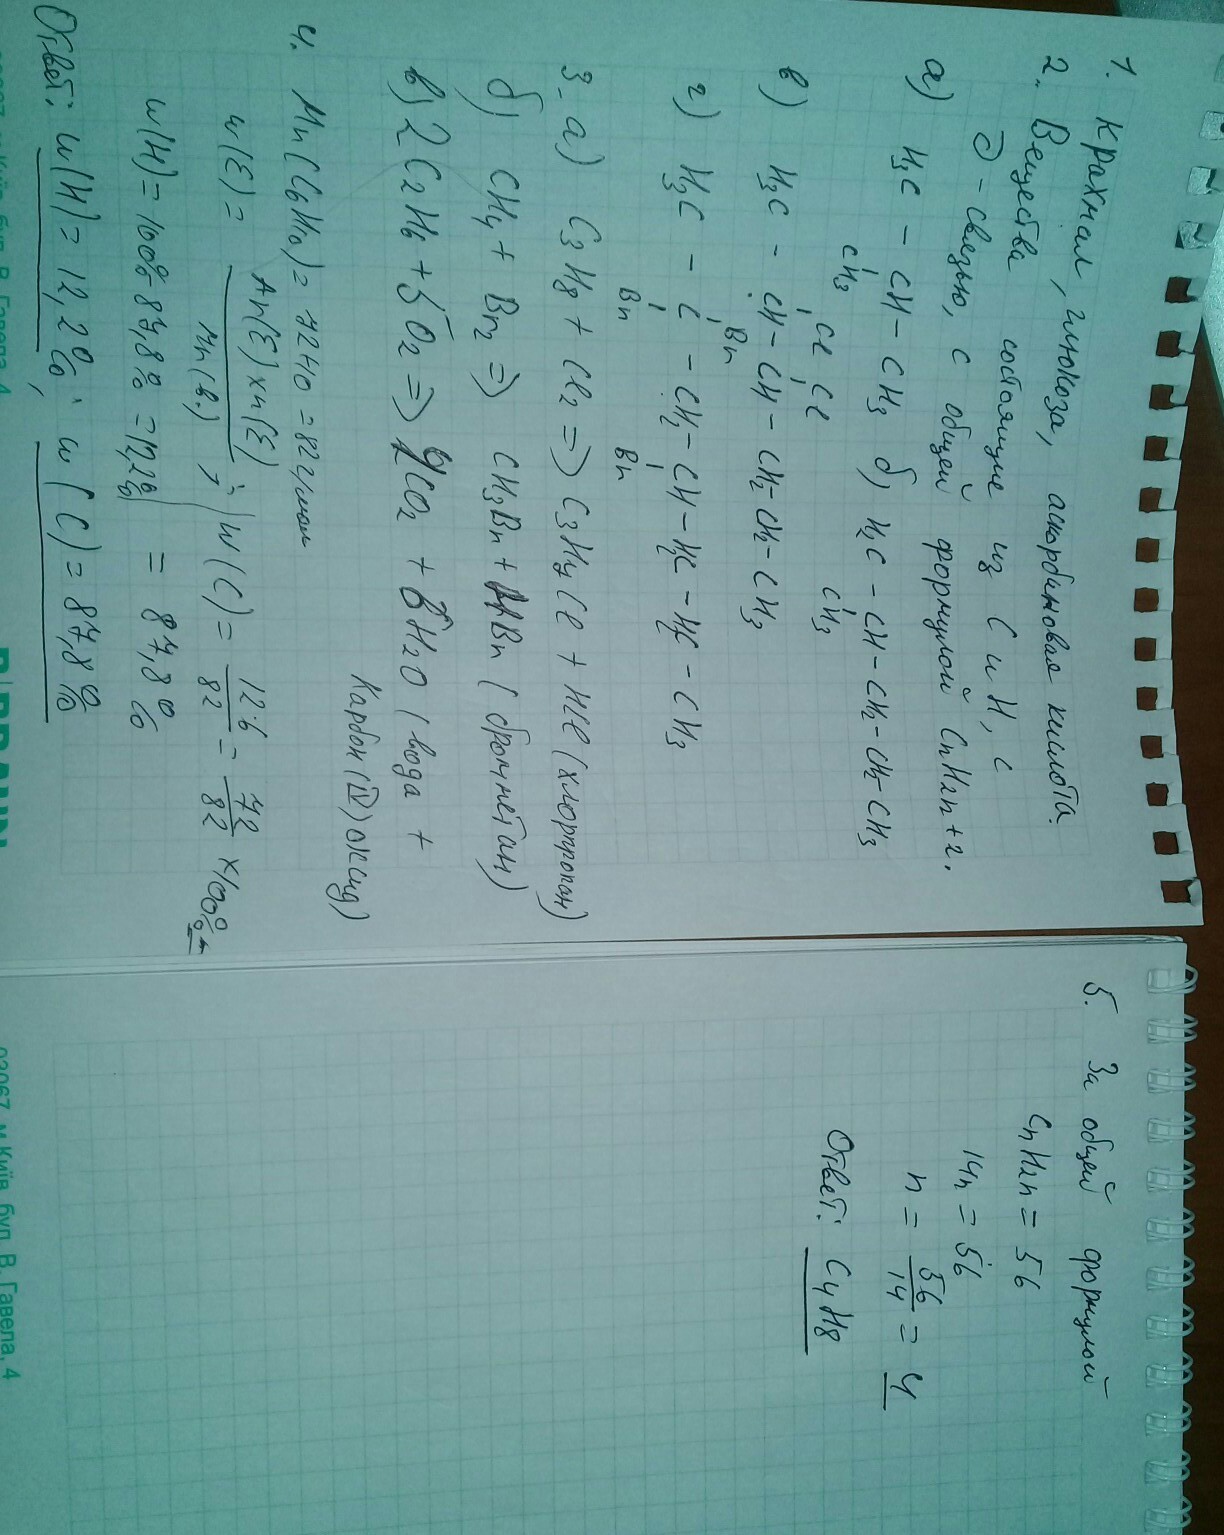 1. Крахмал, глюкоза, аскорбиновая кислота.
2. Вещества состоящие из C и H, с
∂-связью, с общей формулой CnH2n+2.
а) H3C - CH - CH3 б) H2C - CH - CH2 - CH2 - CH3
CH3 CH3
Cl Cl
в) H3C - CH - CH - CH2 - CH2 - CH3
Br
г) H3C - C - CH2 - CH - H2C - H2C - CH3
Br Br
3. а) C3H8 + Cl2 => C3H7Cl + HCl (хлорпропан)
б) CH4 + Br2 => CH3Br + HBr (бромметан)
в) 2C2H6 + 5O2 => CO2 + 6H2O (вода +
Карбон (IV) оксид)
4. Mr(C6H10) = 72+10 = 82 г/моль
w(E) = Ar(E) × n(E) / Mr(в.) ; w(C) = 12·6 / 82 = 72 / 82 × 100% =
w(H) = 100% - 87,8% = 12,2% = 87,8%
Ответ: w(H) = 12,2% ; w(C) = 87,8%
5. За общей формулой
CnH2n = 56
14n = 56
n = 56 / 14 = 4
Ответ: C4H8
03067, м.Київ, бул. В. Гавела, 4